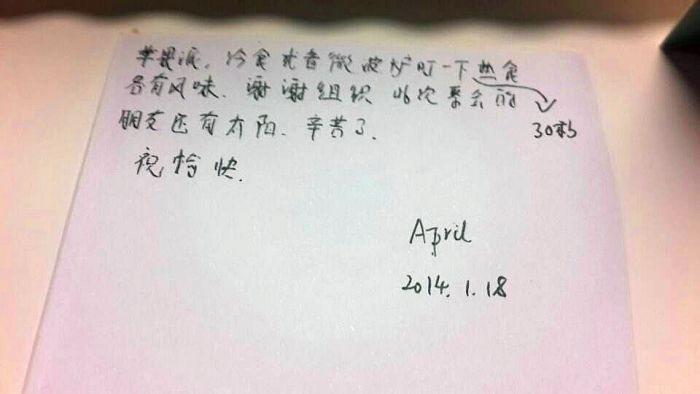 苹果派，冷食或者微波炉叮一下热食
各有风味．谢谢组织此次聚会的
30秒
朋友还有太阳．辛苦了．
祝愉快．
April
2014.1.18